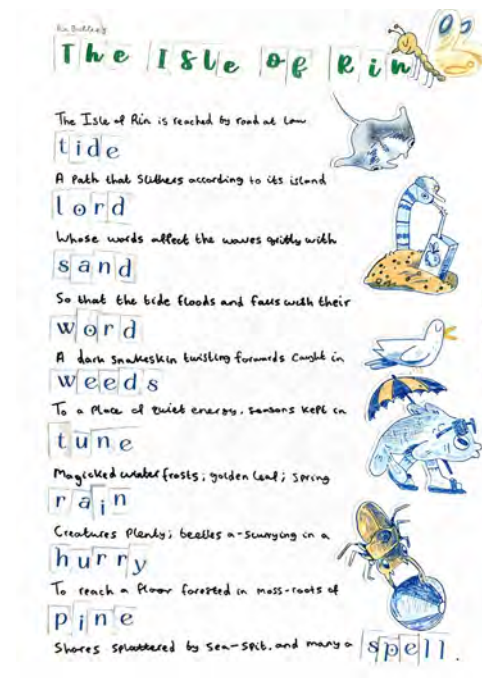 The Isle of Rin
The Isle of Rin is reached by road at low
tide
A path that slithers according to its island
lord
Whose words affect the waves gritty with
sand
So that the tide floods and falls with their
word
A dark snakeskin twisting forwards caught in
weeds
To a place of quiet energy, seasons kept in
tune
Magicked water frosts; golden leaf; spring
rain
Creatures plenty; beetles a-scurrying in a
hurry
To reach a floor forested in moss-roots of
pine
Shores splattered by sea-spit, and many a spell.